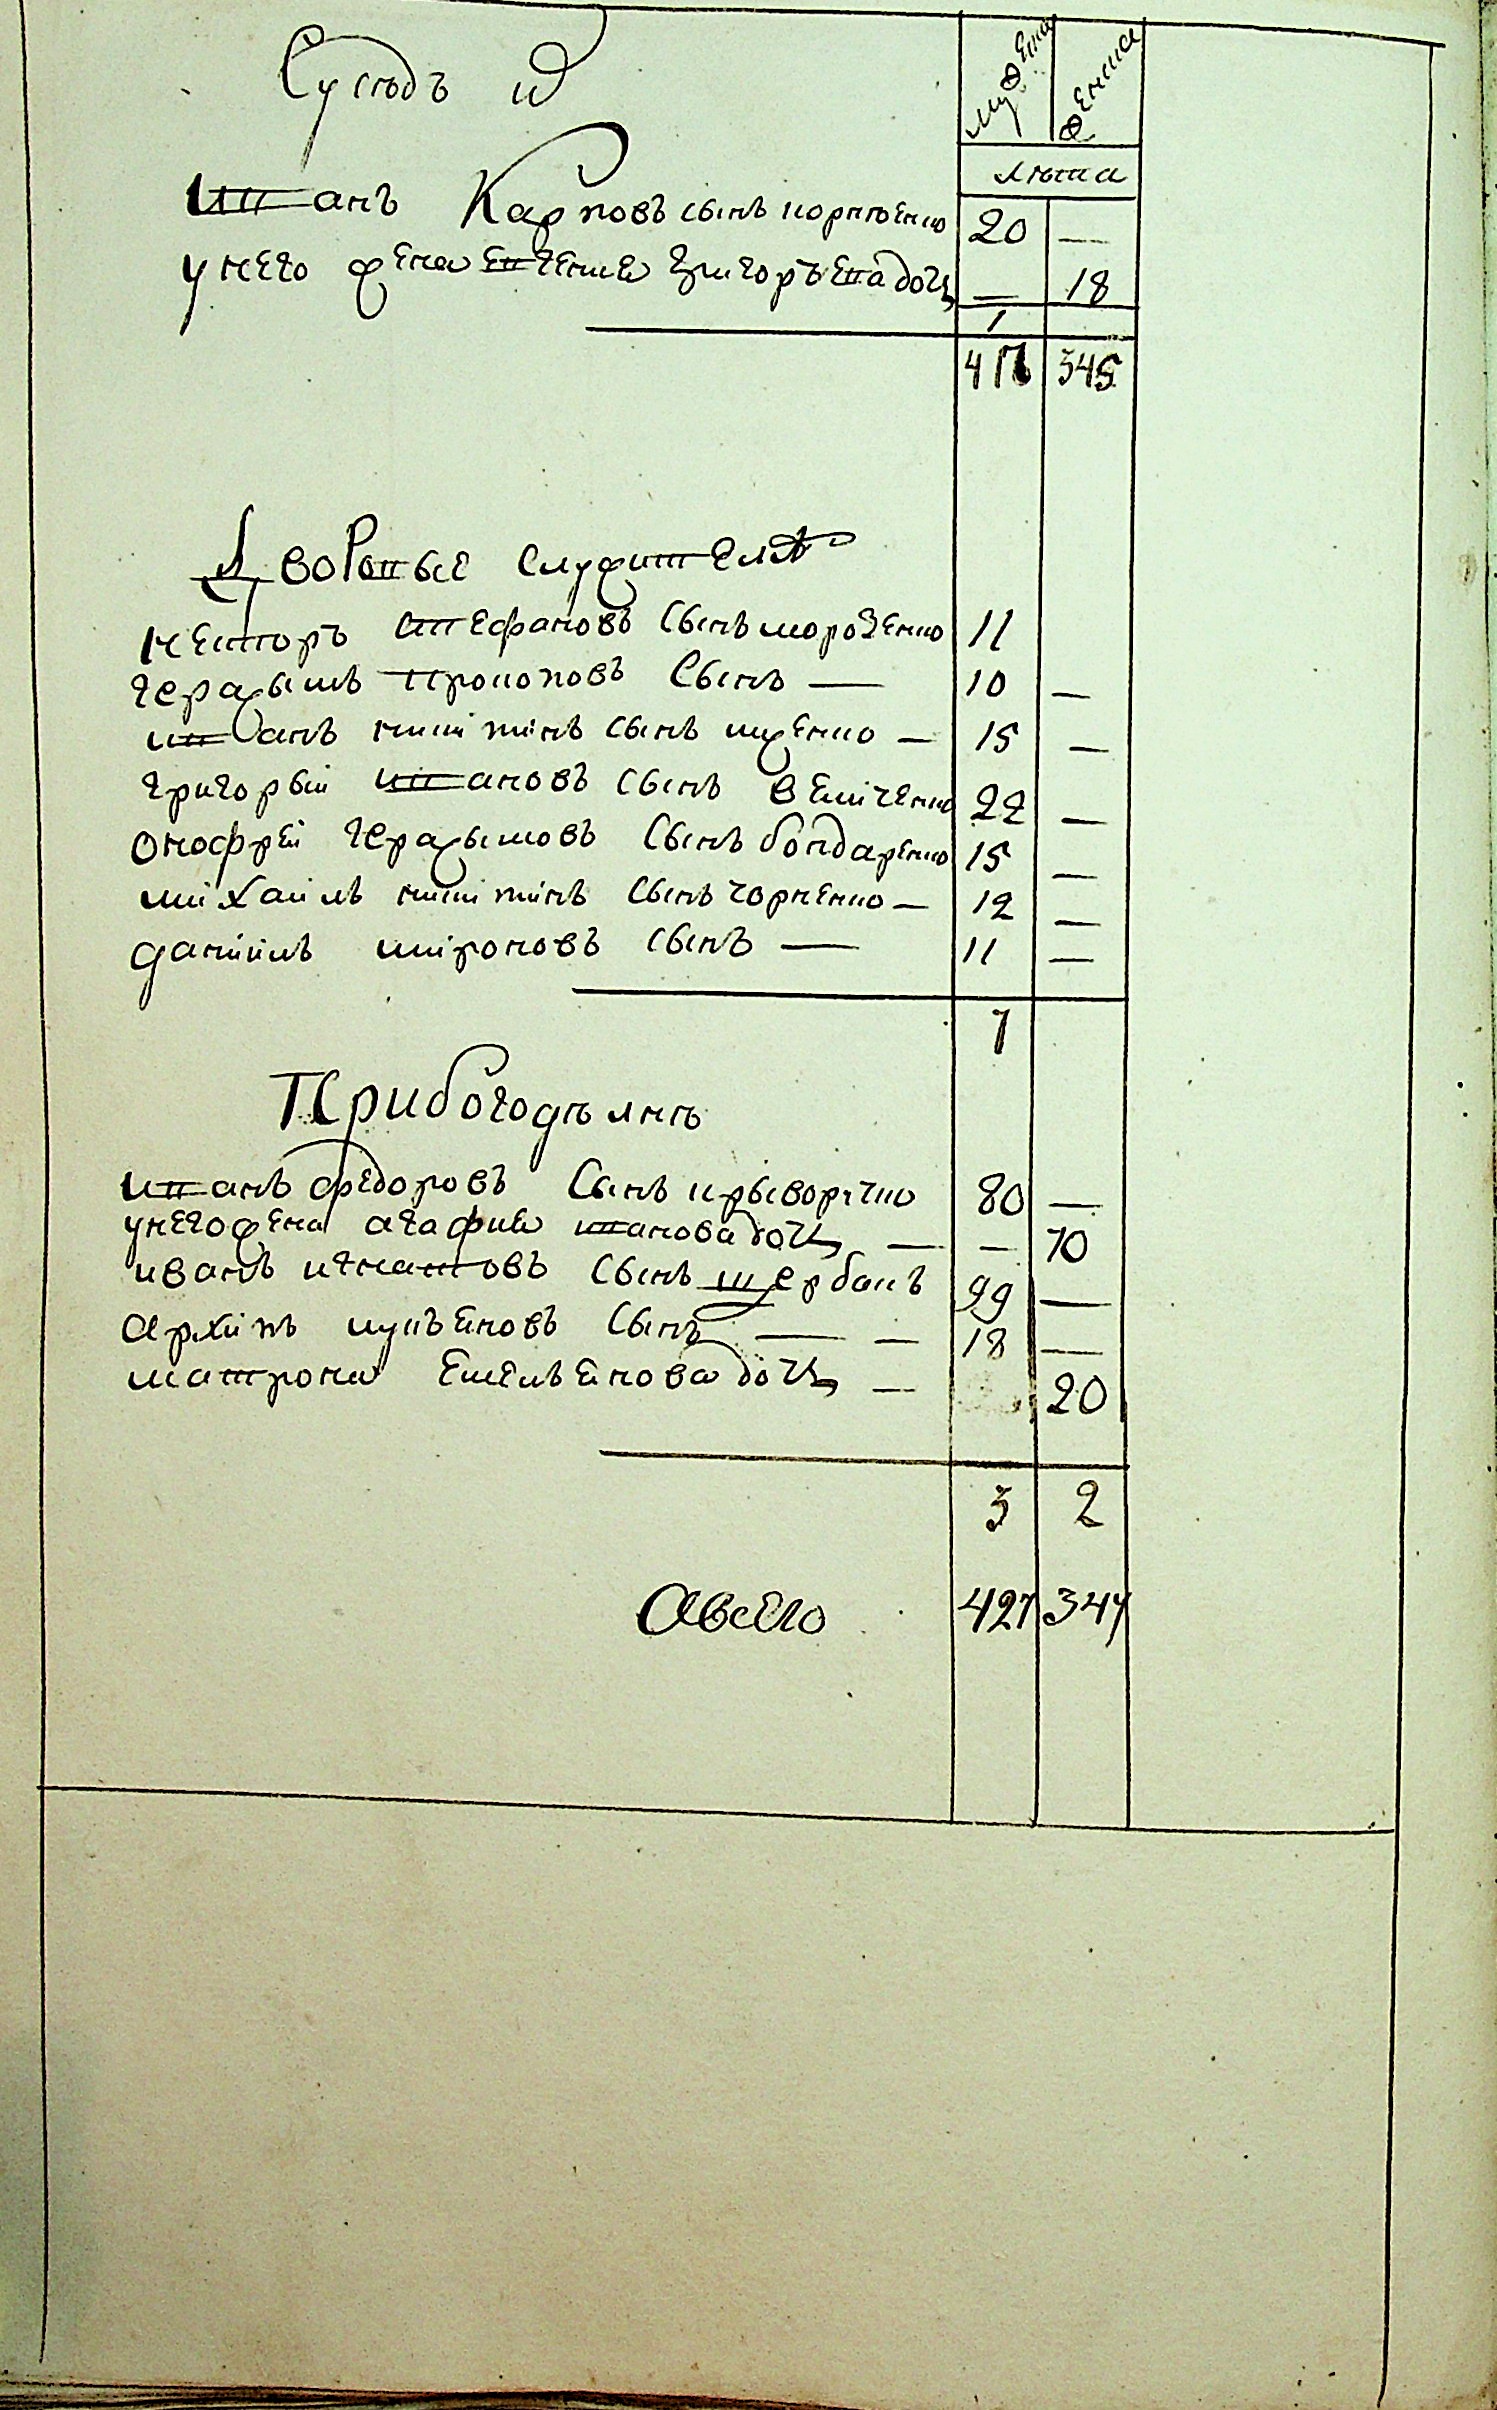 мужеска женска
лѣта
Сусѣдъ ихъ
Иванъ Карповъ сынъ корнѣенко 20 —
у него жена Евгения Григорьева дочь — 18
1
417 345
Дворовые служители
Несторъ Стефановъ сынъ морозенко 11
герасымъ Прокоповъ сынъ — 10 —
иванъ никитинъ сынъ — 15 —
григорый ивановъ сынъ 22 —
онофрей герасымовъ сынъ бондаренко 15 —
михаилъ никитинъ сынъ чорненко — 12 —
даниилъ мироновъ сынъ — 11 —
7
При богодѣлнѣ
иванъ федоровъ сынъ крыворучко 80 —
у него жена агафия иванова дочь — — 70
иванъ игнатовъ сынъ щербакъ 99 —
архипъ лукьяновъ сынъ — — 18 —
матрона Емельянова дочь — 20
3 2
А всего 427 347